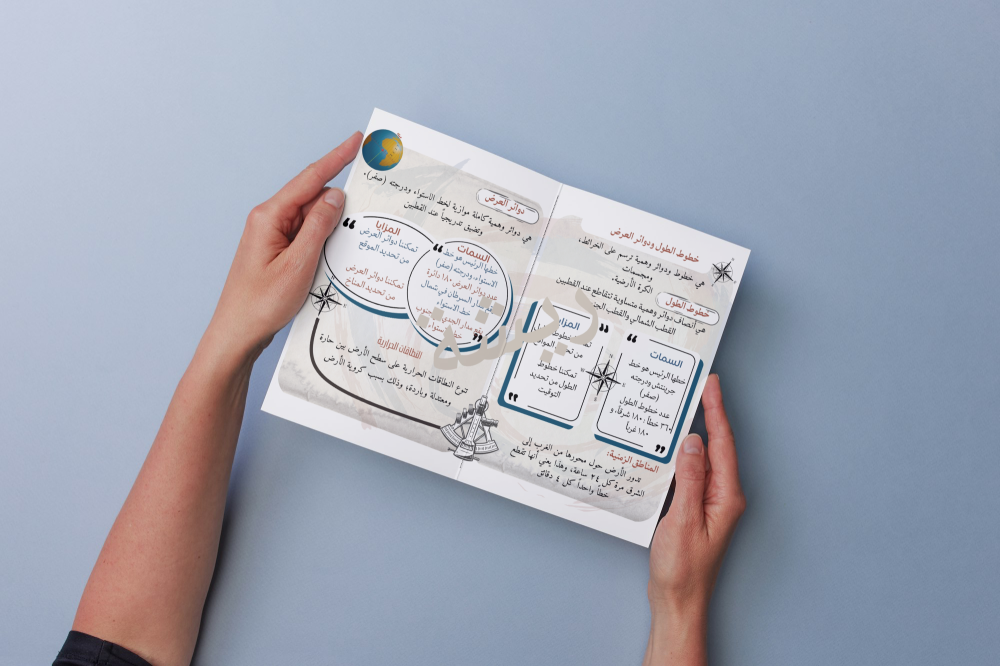 خطوط الطول ودوائر العرض
هي خطوط ودوائر وهمية ترسم على الخرائط،
ومجسمات
الكرة الأرضية.
خطوط الطول
هي أنصاف دوائر وهمية متساوية تتقاطع عند القطبين
القطب الشمالي والقطب
السمات
خطها الرئيس هو خط
جرينتش ودرجته
(صفر)
عدد خطوط الطول
٣٦٠ خطاً : ١٨٠ شرقاً، و
١٨٠ غرباً
المزايا
خطوط الطول
من تحديد المواقع
تمكننا خطوط
الطول من تحديد
التوقيت
المناطق الزمنية:
تدور الأرض حول محورها من الغرب إلى
الشرق مرة كل ٢٤ ساعة، وهذا يعني أنها تقطع
خطاً واحداً كل ٤ دقائق
دوائر العرض
هي دوائر وهمية كاملة موازية لخط الاستواء ودرجته (صفر)،
وتضيق تدريجياً عند القطبين
السمات
خطها الرئيس هو خط
الاستواء، ودرجته (صفر)
عدد دوائر العرض ١٨٠ دائرة
مدار السرطان في شمال
خط الاستواء
يقع مدار الجدي جنوب
خط الاستواء
المزايا
تمكننا دوائر العرض
من تحديد الموقع
تمكننا دوائر العرض
من تحديد المناخ
النطاقات الحرارية
تنوع النطاقات الحرارية على سطح الأرض بين حارة
ومعتدلة وباردة، وذلك بسبب كروية الأرض
ديستة